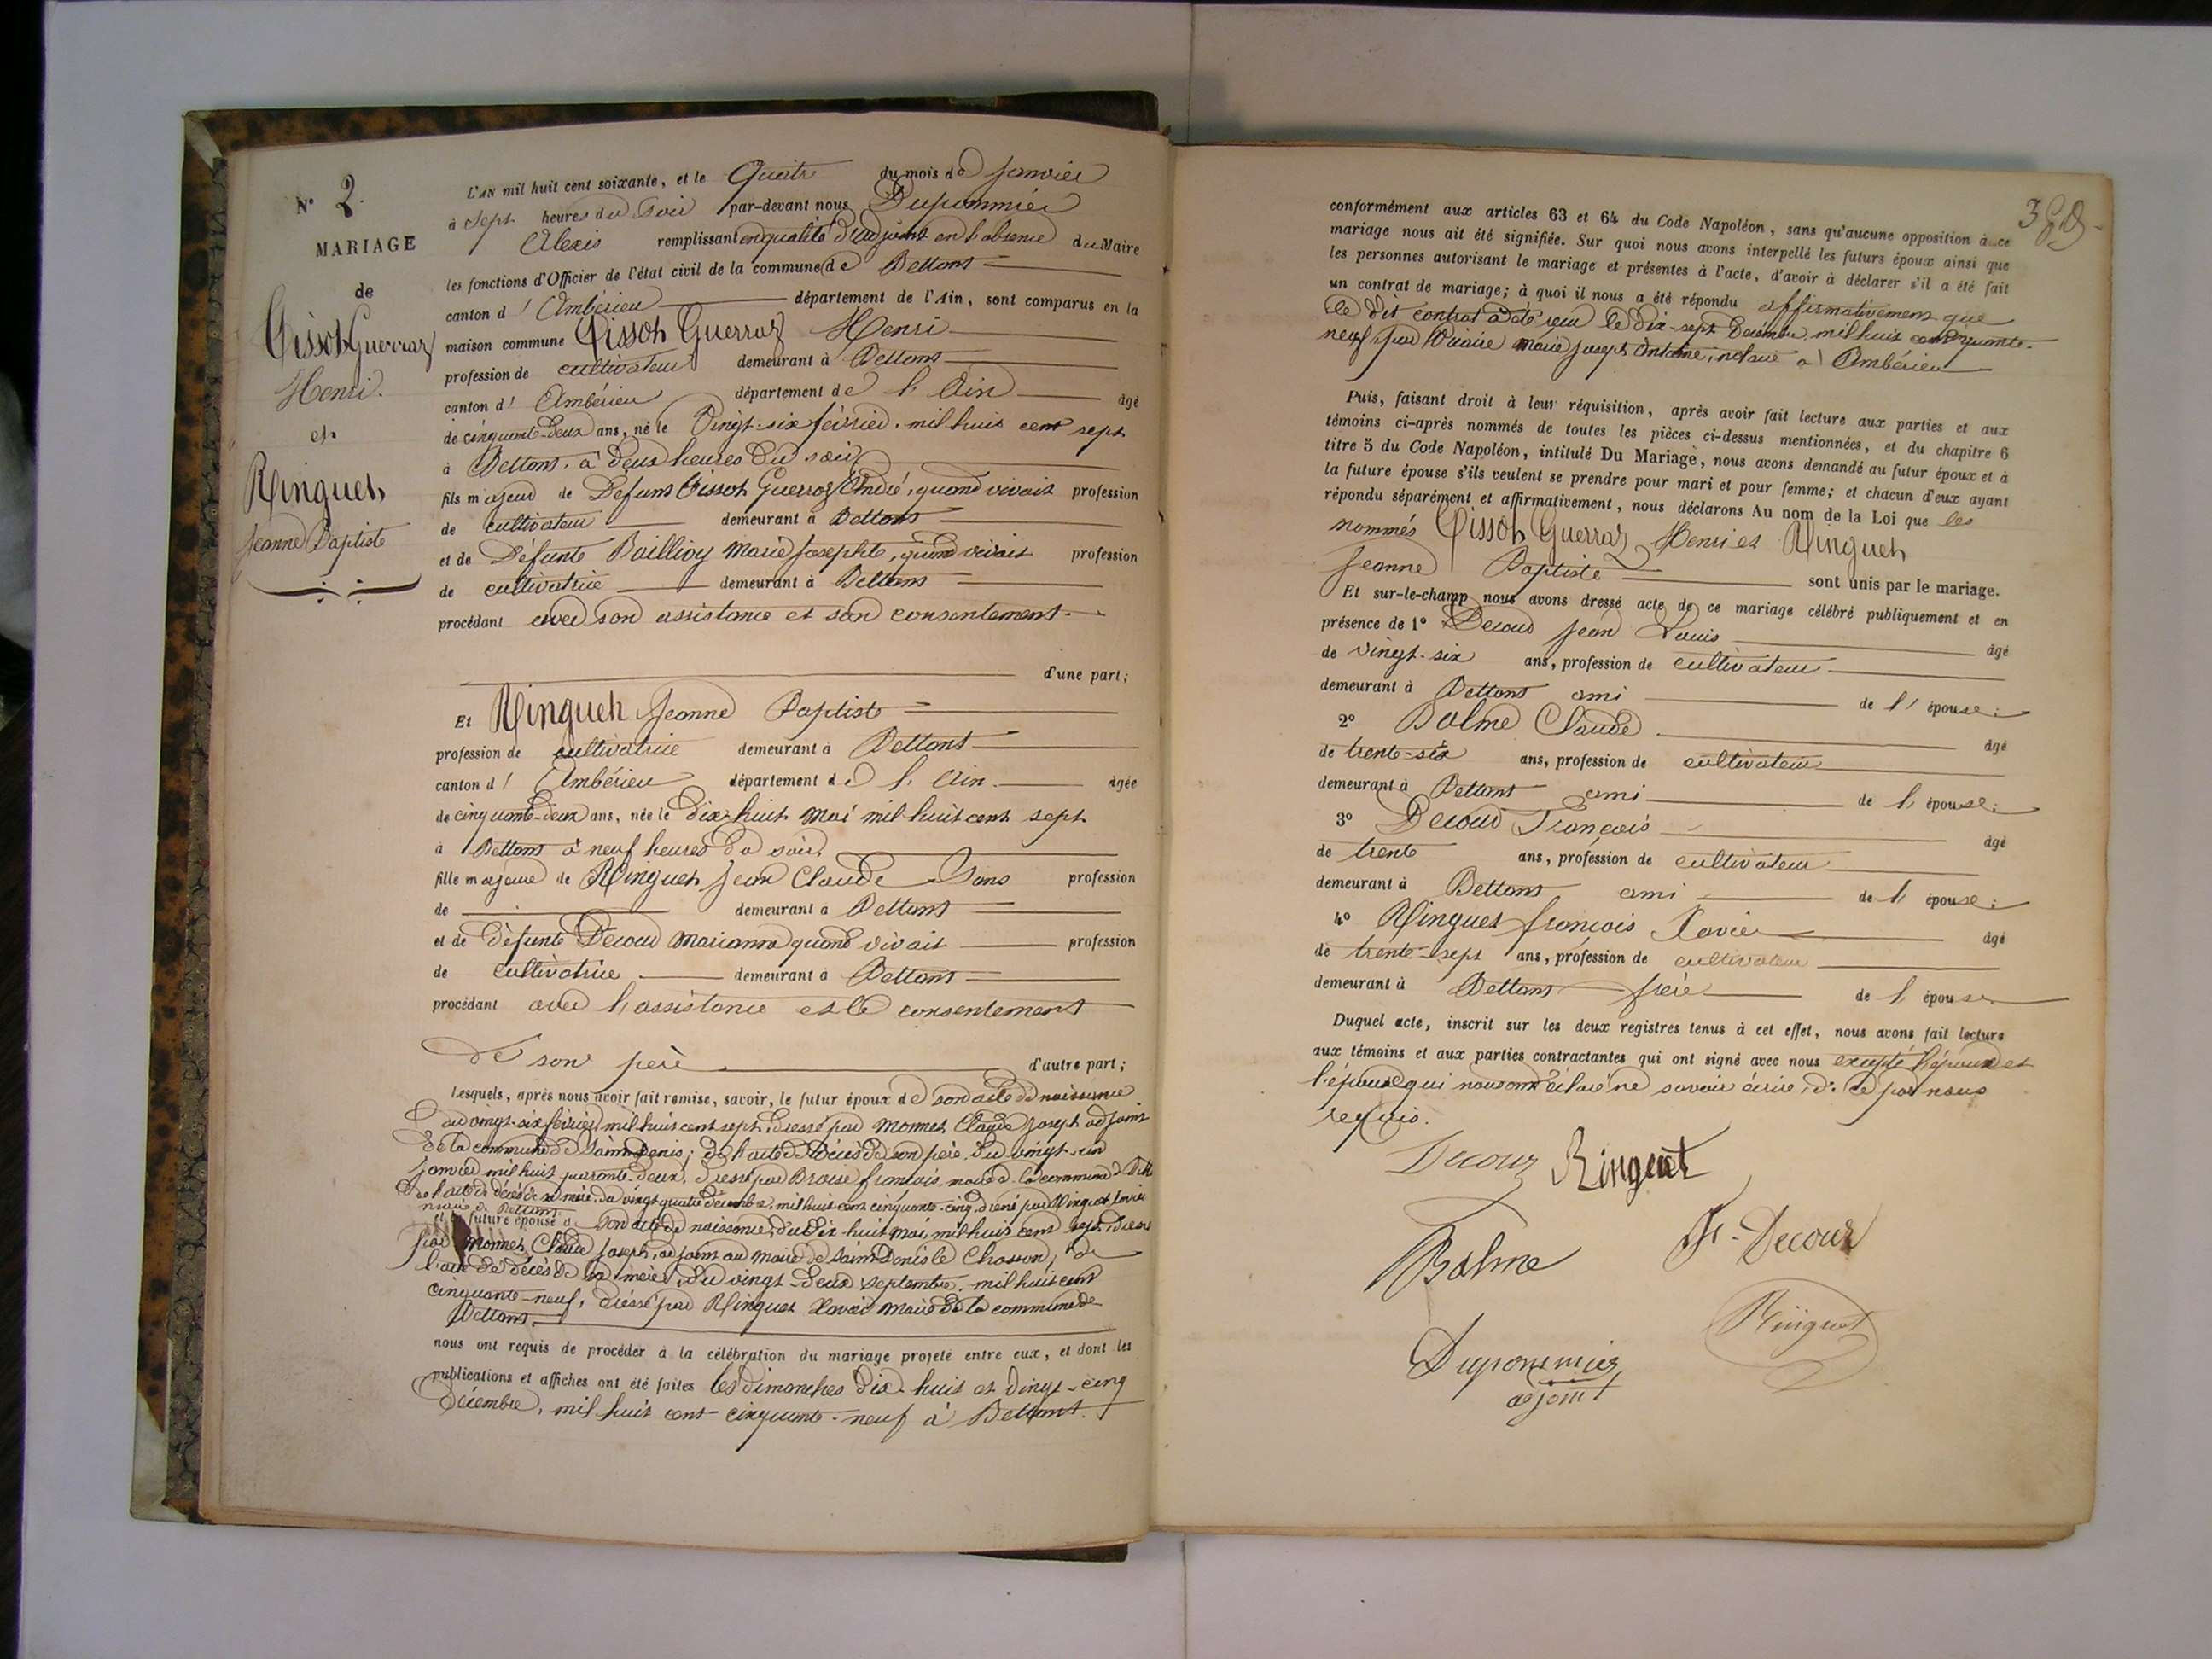 N° 2.
MARIAGE
de
Tissot Guerraz
Henri.
et
Ringuet
Jeanne Baptiste
L'AN mil huit cent soixante, et le Quatre du mois de Janvier
à sept heures du soir par-devant nous Dupommier
Alexis remplissant en qualité d'adjoint en l'absence du Maire
les fonctions d'Officier de l'état civil de la commune de Bettant
canton d'Ambérieu département de l'Ain, sont comparus en la
maison commune Tissot Guerraz Henri
profession de cultivateur demeurant à Bettant
canton d'Ambérieu département de l'Ain âgé
de cinquante-deux ans, né le Vingt-six février mil huit cent sept
à Bettant à deux heures du soir
fils majeur de Défunt Tissot Guerraz André, quand vivait profession
de cultivateur demeurant à Bettant
et de Défunte Baillivy Marie Josephte, quand vivait profession
de cultivatrice demeurant à Bettant
procédant avec son assistance et son consentement.
d'une part;
Et Ringuet Jeanne Baptiste
profession de cultivatrice demeurant à Bettant
canton d'Ambérieu département de l'Ain âgée
de cinquante-deux ans, née le Dix-huit Mai mil huit cent sept
à Bettant à neuf heures du soir,
fille majeure de Ringuet Jean Claude Sans profession
de demeurant à Bettant
et de Défunte Decour Marianne quand vivait profession
de cultivatrice demeurant à Bettant
procédant avec l'assistance et le consentement
de son père d'autre part;
Lesquels, après nous avoir fait remise, savoir, le futur époux de son acte de naissance
du vingt-six février mil huit cent sept, dressé par Monnet Claude Joseph adjoint
de la commune de Saint Denis; de l'acte de décès de son père du vingt-un
janvier mil huit quarante-deux, dressé par François maire de la commune de Bett
de l'acte de décès de sa mère, du vingt quatre décembre, mil huit cent cinquante-cinq, dressé par Ringuet Xavier
maire de Bettant
et la future épouse de son acte de naissance, du Dix-huit Mai, mil huit cent sept, dressé
par Monnet Claude Joseph, adjoint au maire de Saint Denis le Chosson, de
l'acte de décès de sa mère, du vingt-deux septembre, mil huit cent
cinquante-neuf, dressé par Ringuet Xavier Maire de la commune de
Bettant.
nous ont requis de procéder à la célébration du mariage projeté entre eux, et dont les
publications et affiches ont été faites les dimanches dix-huit et vingt-cinq
décembre, mil huit cent-cinquante-neuf à Bettant.
conformément aux articles 63 et 64 du Code Napoléon, sans qu'aucune opposition à ce
mariage nous ait été signifiée. Sur quoi nous avons interpellé les futurs époux ainsi que
les personnes autorisant le mariage et présentes à l'acte, d'avoir à déclarer s'il a été fait
un contrat de mariage; à quoi il nous a été répondu affirmativement que
le dit contrat a été reçu le dix-sept Décembre mil huit cent cinquante-
neuf, par Marie Joseph Antoine, notaire à Ambérieu
Puis, faisant droit à leur réquisition, après avoir fait lecture aux parties et aux
témoins ci-après nommés de toutes les pièces ci-dessus mentionnées, et du chapitre 6
titre 5 du Code Napoléon, intitulé Du Mariage, nous avons demandé au futur époux et à
la future épouse s'ils veulent se prendre pour mari et pour femme; et chacun d'eux ayant
répondu séparément et affirmativement, nous déclarons Au nom de la Loi que les
nommés Tissot Guerraz Henri et Ringuet
Jeanne Baptiste sont unis par le mariage.
Et sur-le-champ nous avons dressé acte de ce mariage célébré publiquement et en
présence de 1° Decour Jean Louis âgé
de vingt-six ans, profession de cultivateur
demeurant à Bettant ami de l'épouse;
2° Balme Claude âgé
de trente-six ans, profession de cultivateur
demeurant à Bettant ami de l'épouse;
3° Decour François âgé
de trente ans, profession de cultivateur
demeurant à Bettant ami de l'épouse;
4° Ringuet François Xavier âgé
de trente-sept ans, profession de cultivateur
demeurant à Bettant frère de l'épouse.
Duquel acte, inscrit sur les deux registres tenus à cet effet, nous avons fait lecture
aux témoins et aux parties contractantes qui ont signé avec nous excepté l'époux et
l'épouse qui nous ont déclaré ne savoir écrire, de ce par nous
requis.
Decour Ringuet
Balme Fr. Decour
Ringuet
Dupommier
adjoint